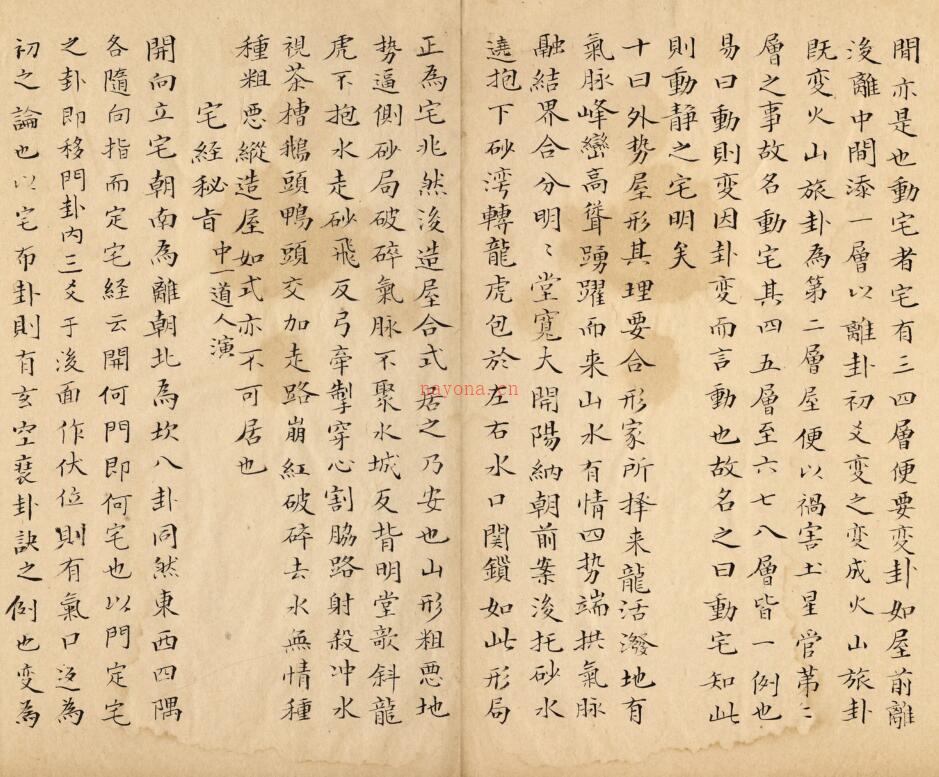 間亦是也動宅者宅有三四層便要变卦如屋前離
後離中間添一層以離卦初爻变之变成火山旅卦
既变火山旅卦為第二層屋便以禍害土星管第二
層之事故名動宅其四五層至六七八層皆一例也
易曰動則变因卦变而言動也故名之曰動宅知此
則動静之宅明矣
十曰外势屋形其理要合形家所择来龍活潑地有
氣脉峰巒高聳踴躍而来山水有情四势端拱氣脉
融結界合分明〻堂寬大開陽納朝前案後托砂水
遶抱下砂湾轉龍虎包於左右水口関鎖如此形局
正為宅兆然後造屋合式居之乃安也山形粗悪地
势逼側砂局破碎氣脉不聚水城反背明堂欹斜龍
虎不抱水走砂飛反弓牵掣穿心割脇路射殺冲水
視茶槽鵝頭鴨頭交加走路崩紅破碎去水無情種
種粗悪縱造屋如式亦不可居也
宅経秘旨 中一道人演
開向立宅朝南為離朝北為坎八卦同然東西四隅
各隨向指而定宅経云開何門即何宅也以門定宅
之卦即移門卦内三爻于後面作伏位則有氣口迳為
初之論也以宅布卦則有玄空裝卦訣之例也变為
nayona.cn